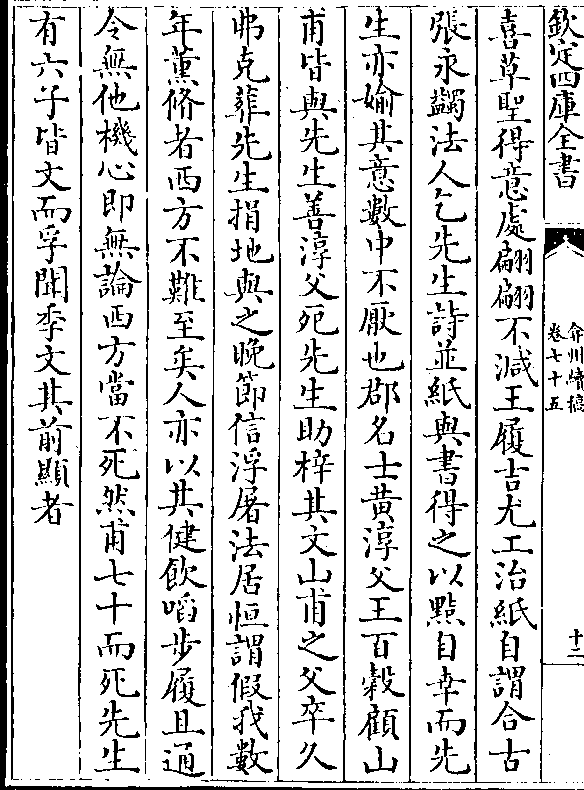 欽定四庫全書
弇州續稿
卷七十五
十二
喜草聖得意處翩翩不減王履吉尤工治紙自謂合古
張永蠲法人乞先生詩並紙與書得之以㸃自幸而先
生亦媮其意數中不厭也郡名士黄淳父王百穀顧山
甫皆與先生善淳父死先生助梓其文山甫之父卒久
弗克葬先生捐地與之晚節信浮屠法居恒謂假我數
年薰脩者西方不難至矣人亦以其健飲啗步履且通
令無他機心即無論西方當不死然甫七十而死先生
有六子皆文而孚聞季文其前顯者